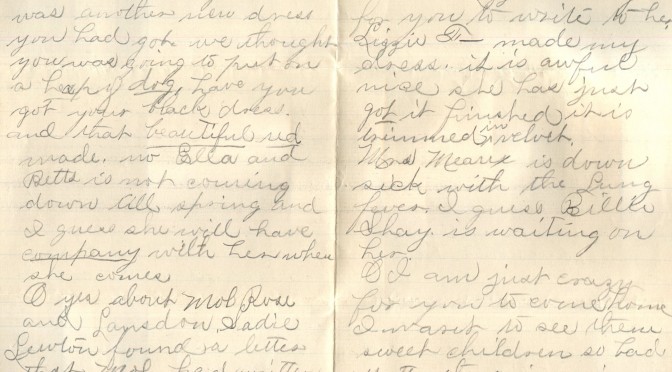 was another new dress
you had got. we thought
you was going to put on
a heap of dog, have you
got your black dress.
and that beautiful red
made. no Ella and
Betts is not coming
down All spring and
I guess she will have
company with her when
she comes
O yes about Mol Rose
and Lansdon, Sadie
Lewton found a letter
that Mol had written
for you to write to her
Lizzie F- made my
dress. it is awful
nice she has just
got it finished it is
trimmed in velvet.
Mrs Mearx is down
sick with the Lung
fever. I guess Billie
Shay is waiting on
her.
O I am just crazy
for you to come home
I want to see them
sweet children so bad